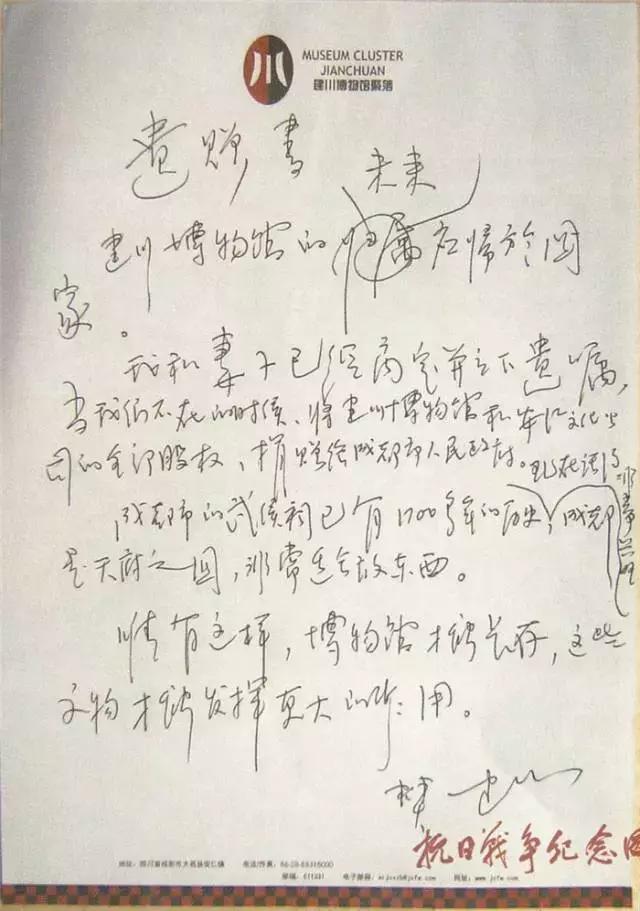 川
MUSEUM CLUSTER
JIANCHUAN
建川博物馆聚落
遺赠書
未来
建川博物馆的归属应帰於国
家。
我和妻子已经商定并立下遗嘱,
当我们不在的时候、将建川博物馆和安仁文化公
司的全部股权,捐赠给成都市人民政府。
成都市的武侯祠已有1700多年的历史,成都
是天府之国,非常适合放东西。
惟有这样,博物馆才能长存,这些
文物才能发挥更大的作用。
樊建川
抗日戰争纪念
地址:四川省成都市大邑县安仁镇 电话/传真:86-28-88318000
邮编:611331 电子邮箱: 网址:www.jcfw.com